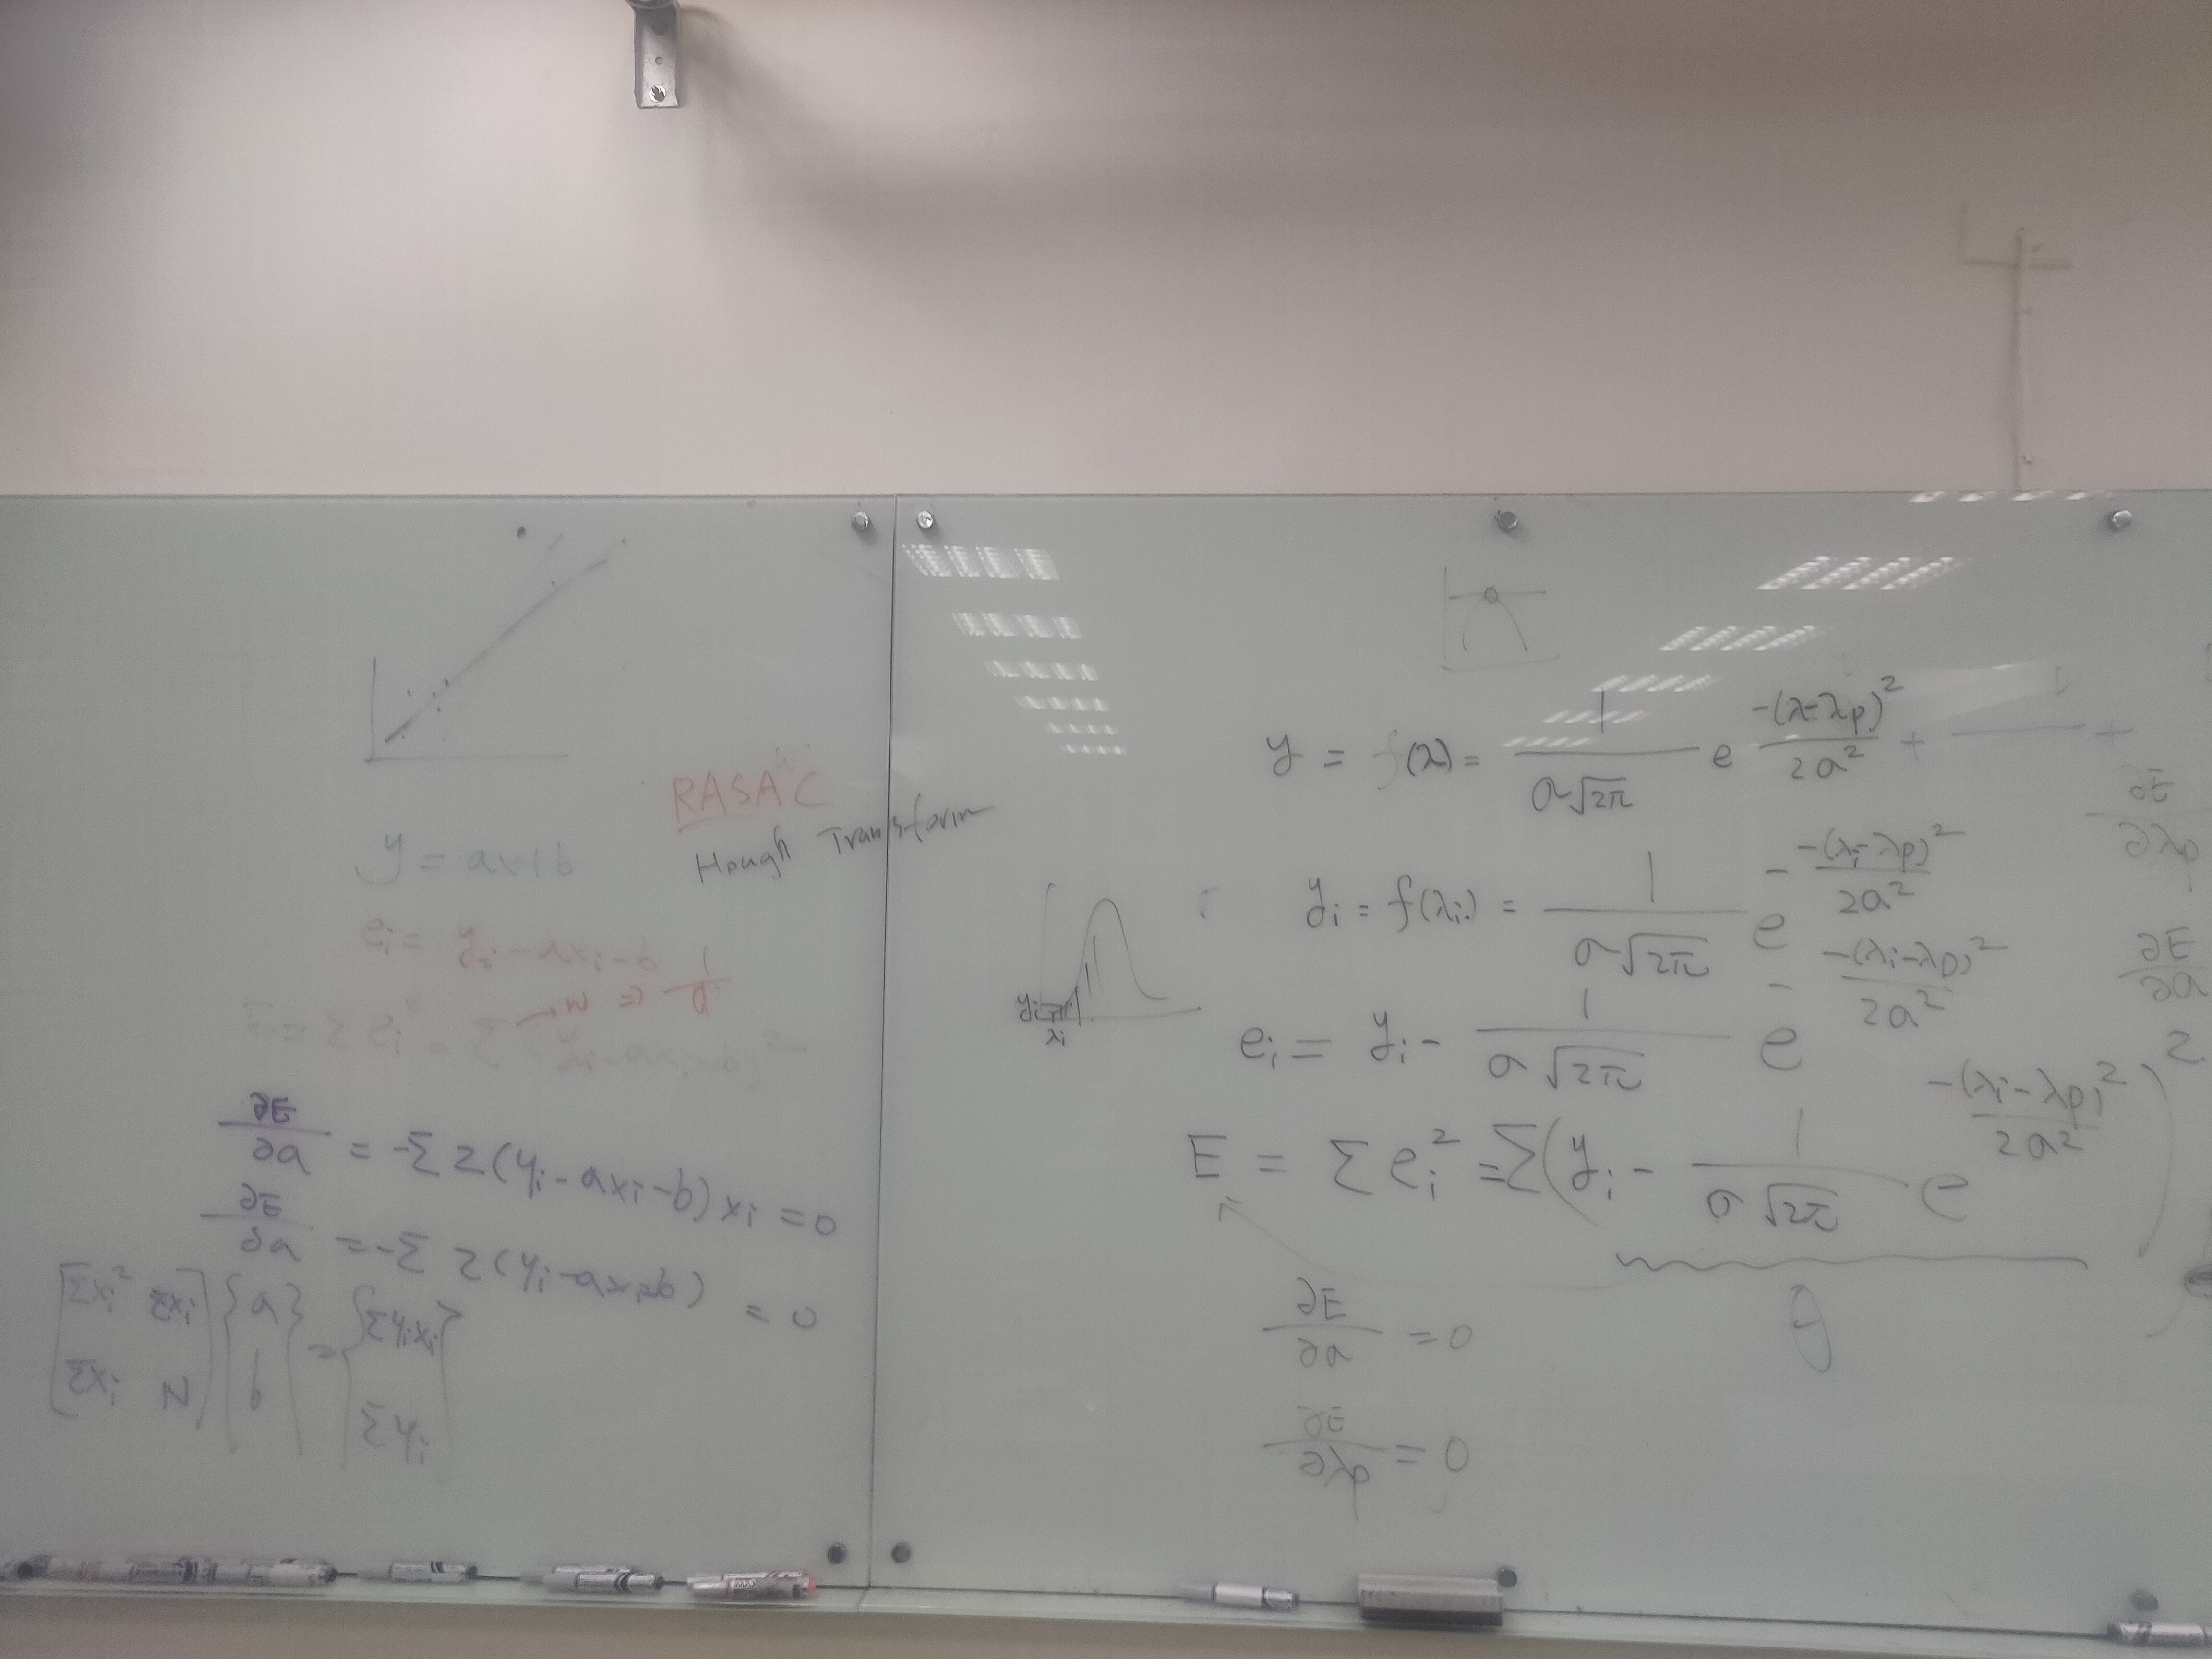 RASANC
Hough Transform
y = ax+b
ei = yi - axi - b
w ⇒ 1/d
E = Σ ei² = Σ (yi - axi - b)²
∂E/∂a = -Σ 2(yi - axi - b) xi = 0
∂E/∂a = -Σ 2(yi - axi - b) = 0
[Σxi² Σxi] {a} = {Σyixi}
[Σxi N] {b} {Σyi}
y = f(λ) = 1/(σ√2π) e -(λ-λp)²/2σ² + +
yi = f(λi) = 1/(σ√2π) e - -(λi-λp)²/2σ²
yi
λi
ei = yi - 1/(σ√2π) e - -(λi-λp)²/2σ²
E = Σ ei² = Σ(yi - 1/(σ√2π) e -(λi-λp)²/2σ² )²
∂E/∂σ = 0
∂E/∂λp = 0
∂E/∂λp
∂E/∂σ